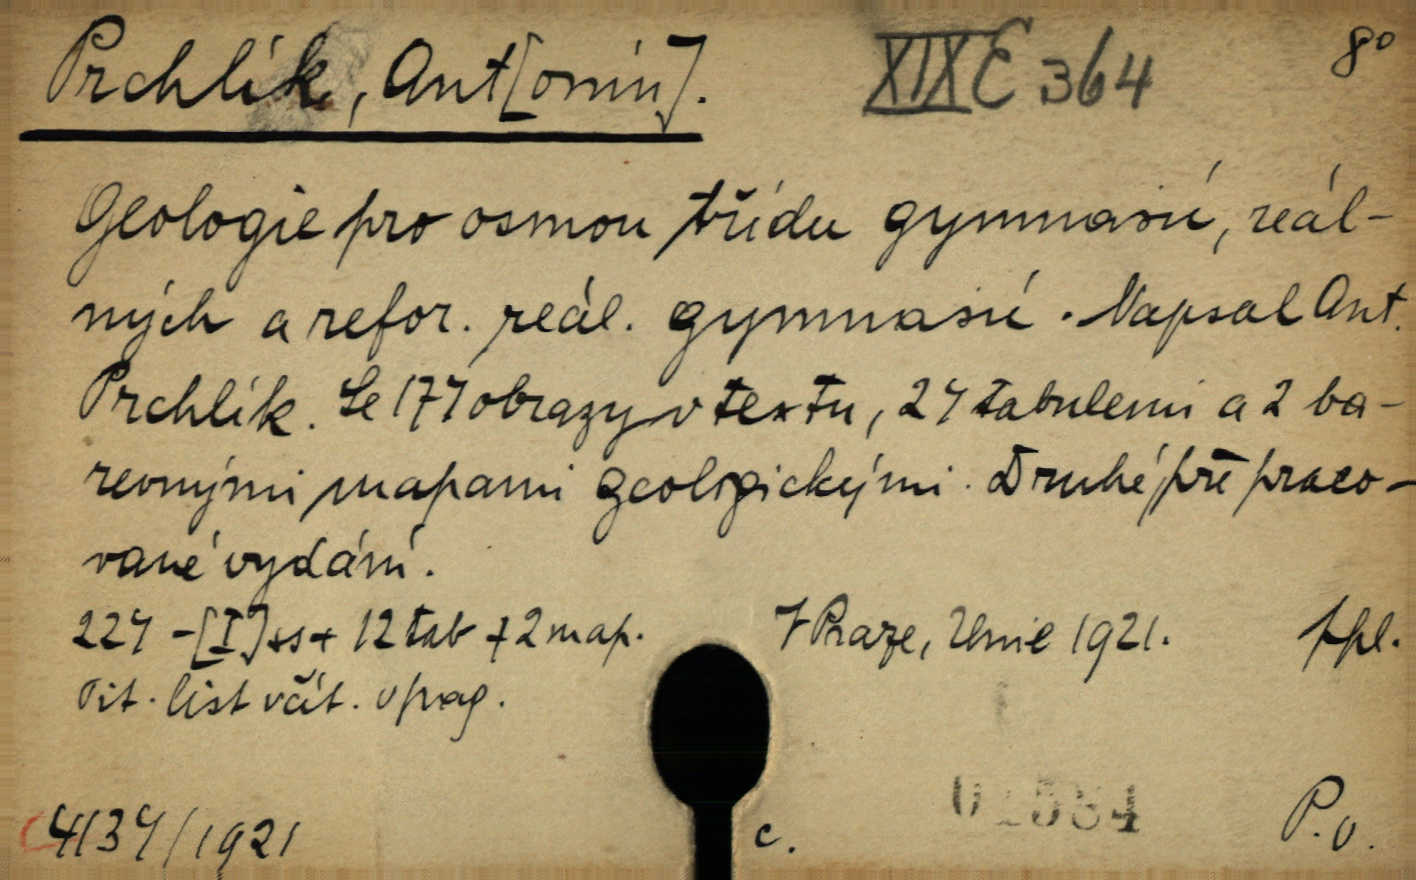 Prchlík, Ant[onín]. XIX E 364 8°
Geologie pro osmou třídu gymnasií, reál-
ných a refor. reál. gymnasií. Napsal Ant.
Prchlík. Se 174 obrazy v textu, 24 tabulemi a 2 ba-
revnými mapami geologickými. Druhé pře praco-
vané vydání.
224 -[I] ss + 12 tab + 2 map. V Praze, Unie 1921. ppl.
Tit. list včít. v pag.
4134/1921 c. P. v.